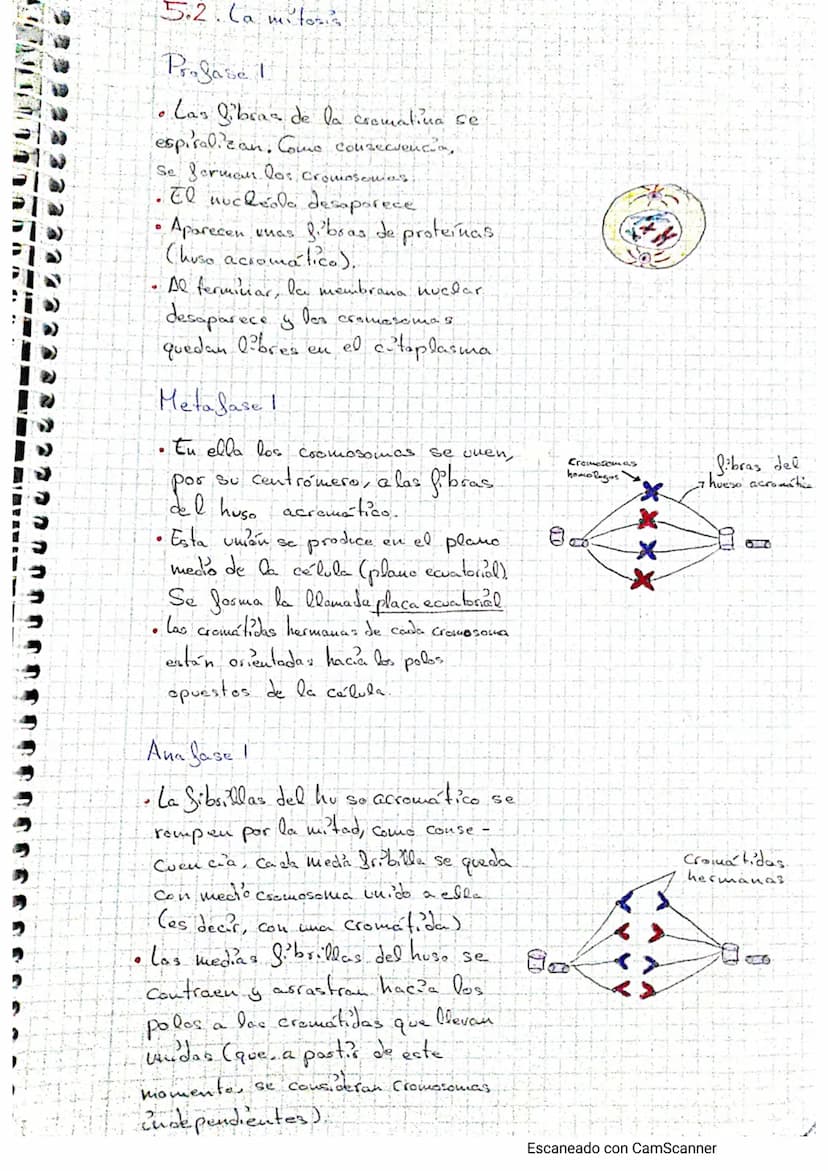 5.2. La mitosis
Profase 1
• Las fibras de la cromatina se
espiralizan. Como consecuencia,
se forman los cromosomas
• El nucléolo desaparece
• Aparecen unas fibras de proteínas
(huso acromático).
• Al terminiar, la membrana nuclear
desaparece y los cromosomas
quedan libres en el citoplasma
Metafase 1
• En ella los cromosomas se unen,
por su centrómero, a las fibras
del huso acromático.
• Esta unión se produce en el plano
medio de la célula (plano ecuatorial)
Se forma la llamada placa ecuatorial
• Las cromátidas hermanas de cada cromosoma
están orientadas hacia los polos
opuestos de la célula.
Cromosomas
homologos
fibras del
hueso acromático
Anafase 1
• La fibrillas del huso acromático se
rompen por la mitad, como conse-
cuencia, cada media fribilla se queda
con medio cromosoma unido a ella
(es decir, con una cromátida)
• Las medias fibrillas del huso se
contraen y arrastran hacia los
polos a las cromátidas que llevan
unidas (que, a partir de este
momento, se consideran cromosomas
independientes).
Cromátidas
hermanas
Escaneado con CamScanner